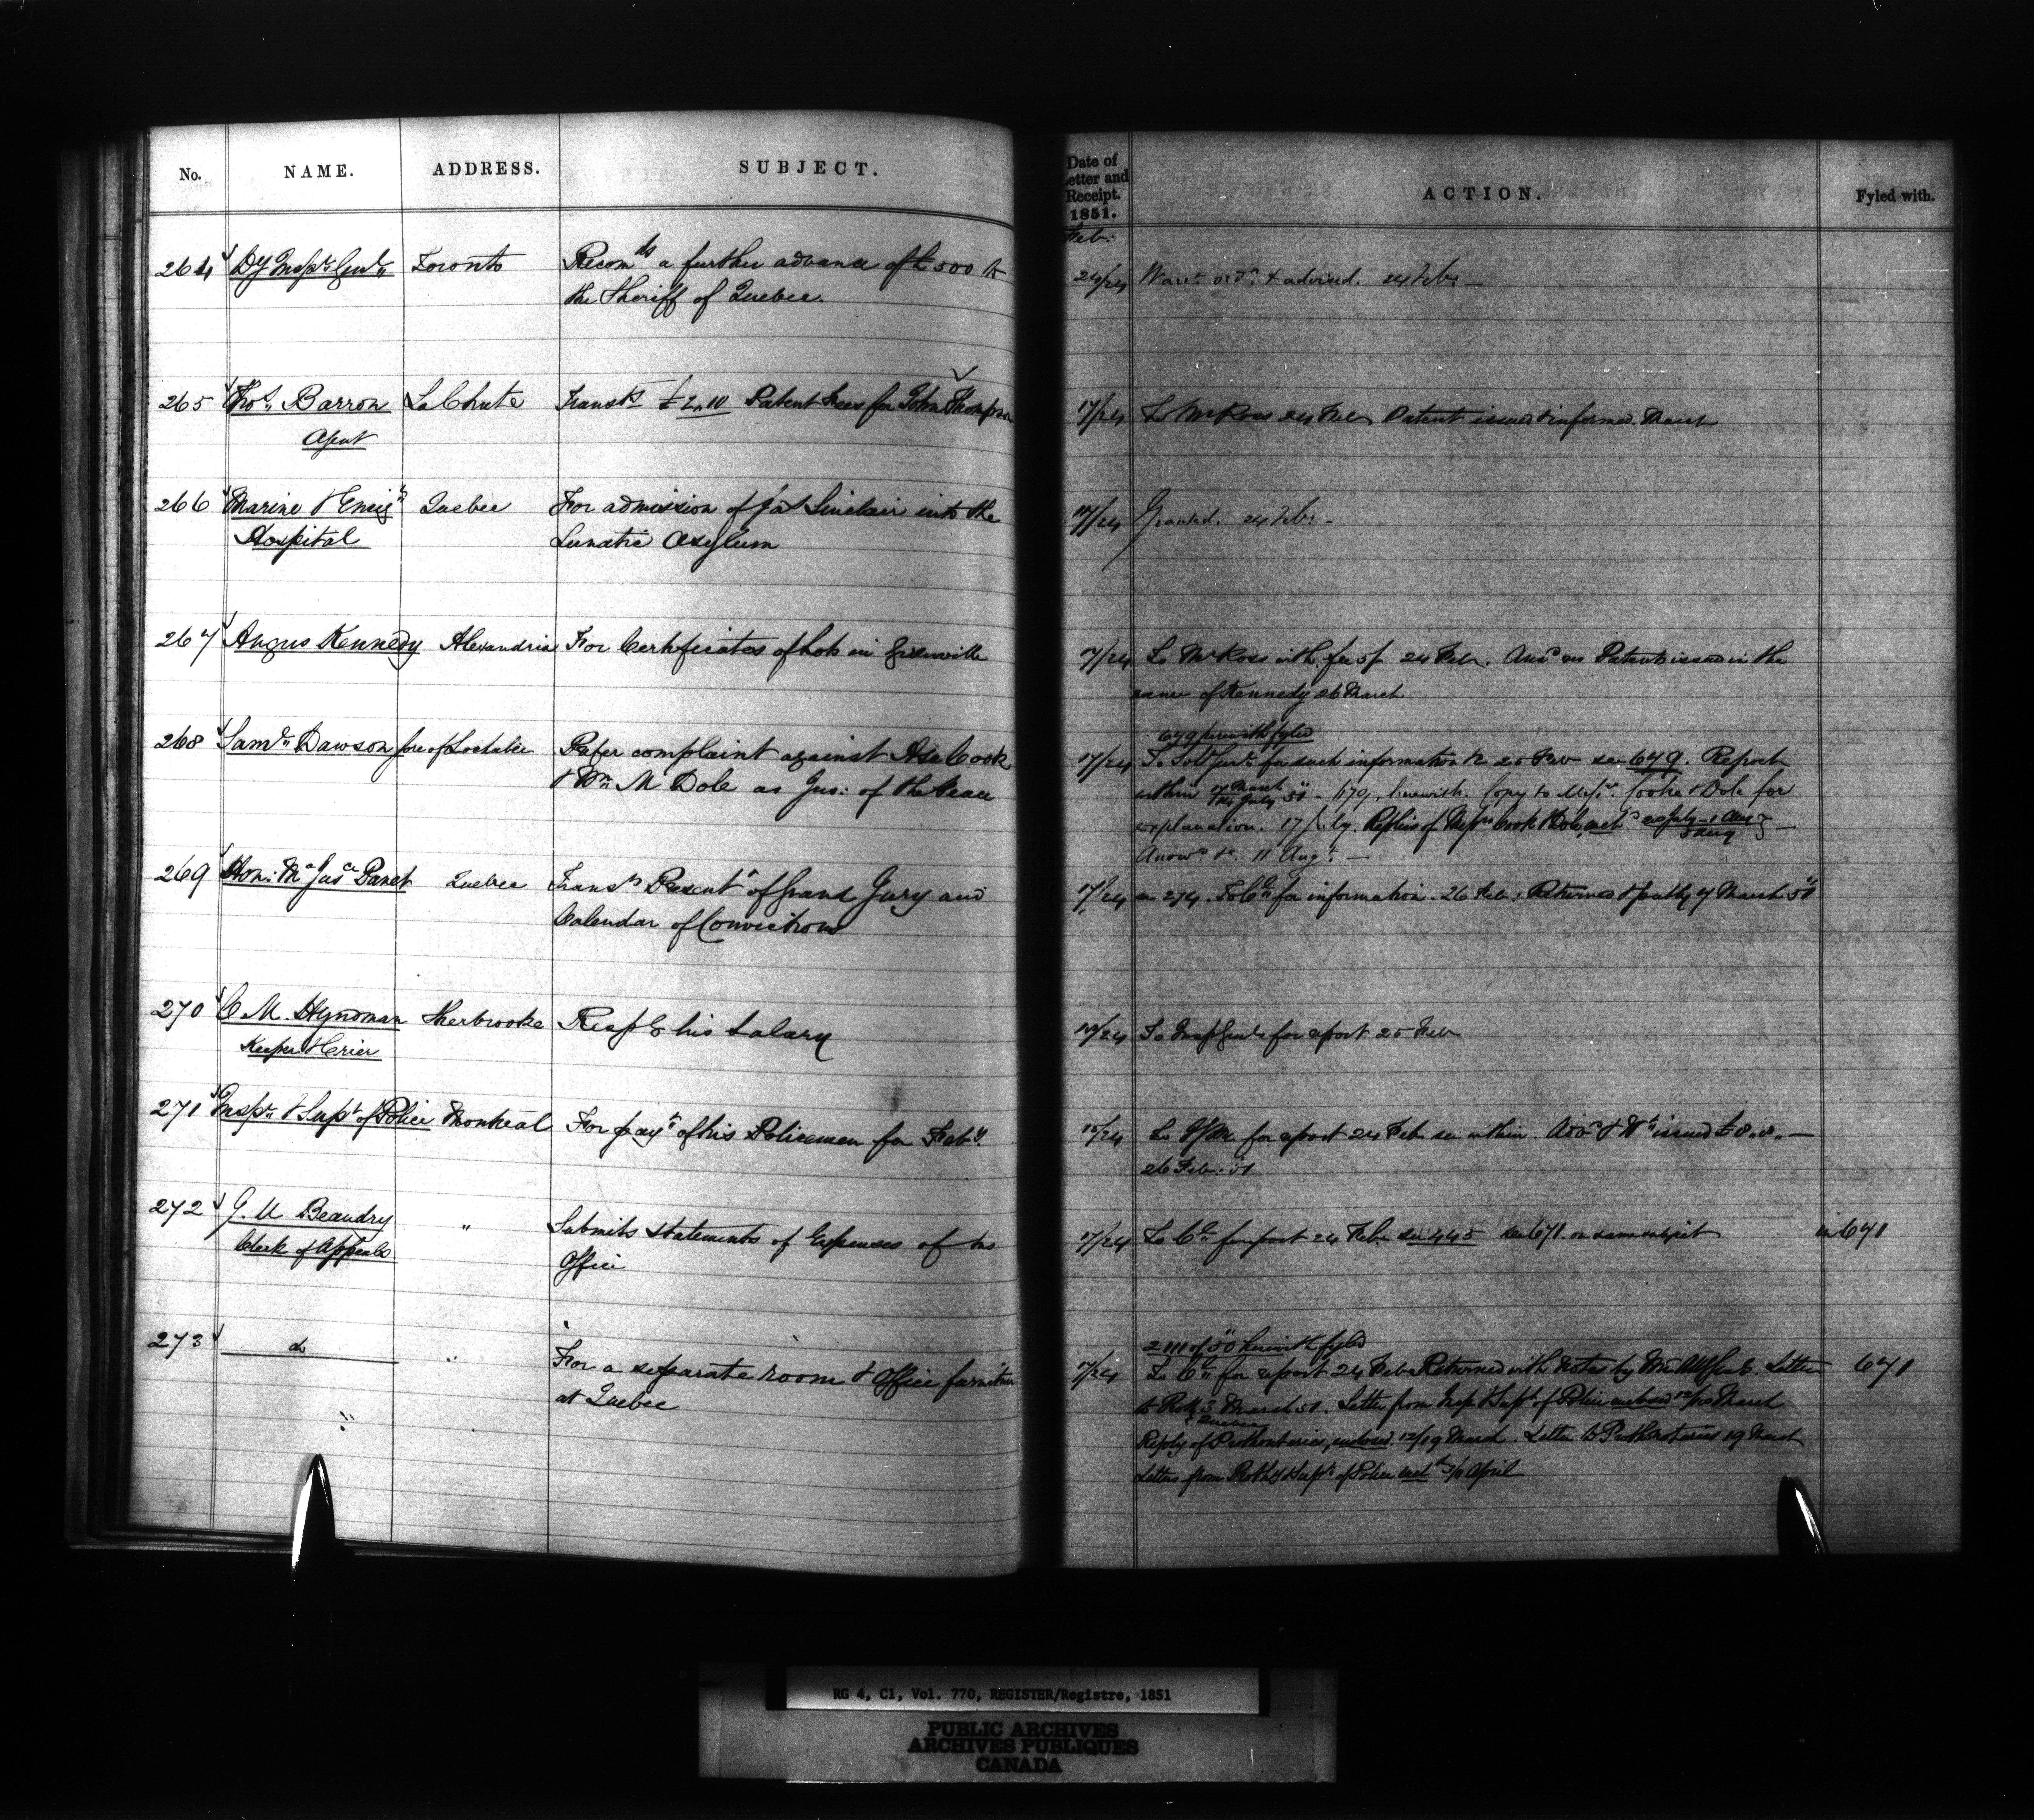 No. NAME. ADDRESS. SUBJECT.
Date of
Letter and
Receipt.
1851.
ACTION. Fyled with.
Feb.
264 Dy Inspr Genl Toronto Recomds a further advance of £500 to
the Sheriff of Quebec.
24/24 Warrt ordd & advised. 24 Feby
265 Thos. Barron LaChute Transts £2.10 Patent Fees for John Thompson
Agent
17/24 To Mr Ross 24 Feb Patent issued & informed March
266 Marine & Emigt Quebec For admission of Jas Sinclair into the
Hospital Lunatic Asylum
/24 Granted. 24 Feby
267 Angus Kennedy Alexandria For Certificates of Lots in Grenville
17/24 To Mr Ross with fee 5/- 24 Feb. Patent issued in the
name of Kennedy 26 March
268 Saml Dawson Lochaber Prefer complaint against Asa Cook
& Wm M Dole as Jus: of the Peace
679 herewith fyled
17/24 To Solr Genl for such information 25 Feb see 679. Report
within 17 March 51 - 679, herewith. Copy to Messrs Cooke & Dole for
explanation. 17 July. Replies of Messrs Cook & Dole
11 Augt. —
269 Hon: Mr Jusce Panet Quebec Transts Presentt of Grand Jury and
Calendar of Convictions
17/24 274. To Cn for information. 26 Feb. Returned 7 March 51
270 C M. Hyndman Sherbrooke Respg his Salary
Keeper & Crier
/24 To Insp Genl for report 25 Feb
271 Inspr & Supt of Police Montreal For payt of his Policemen for Feby.
/24 To for report 24 Feb see within. issued £8. . —
26 Feb: 51
272 G. U Beaudry " Submits statements of Expenses of his
Clerk of Appeals Office
17/24 To for report 24 Feb. see 445 see 671. on same subject in 671
273 do " For a separate room & Office furniture
at Quebec
2111 of 50 herewith fyled
17/24 To for report 24 Feb Returned with Notes by Letter 671
to 3 March 51. Letter from Insp & Supt of Police March
Quebec
Reply of Prothonotaries, enclosed. 12/19 March. Letter to Prothonotaries 19 March
Letters from Prothy & Supt of Police April
RG 4, C1, Vol. 770, REGISTER/Registre, 1851
PUBLIC ARCHIVES
ARCHIVES PUBLIQUES
CANADA